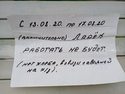 С 13.08.20. по 17.08.20
(включительно) Ларёк
работать не будет.
(нет хлеба,
на х/з).